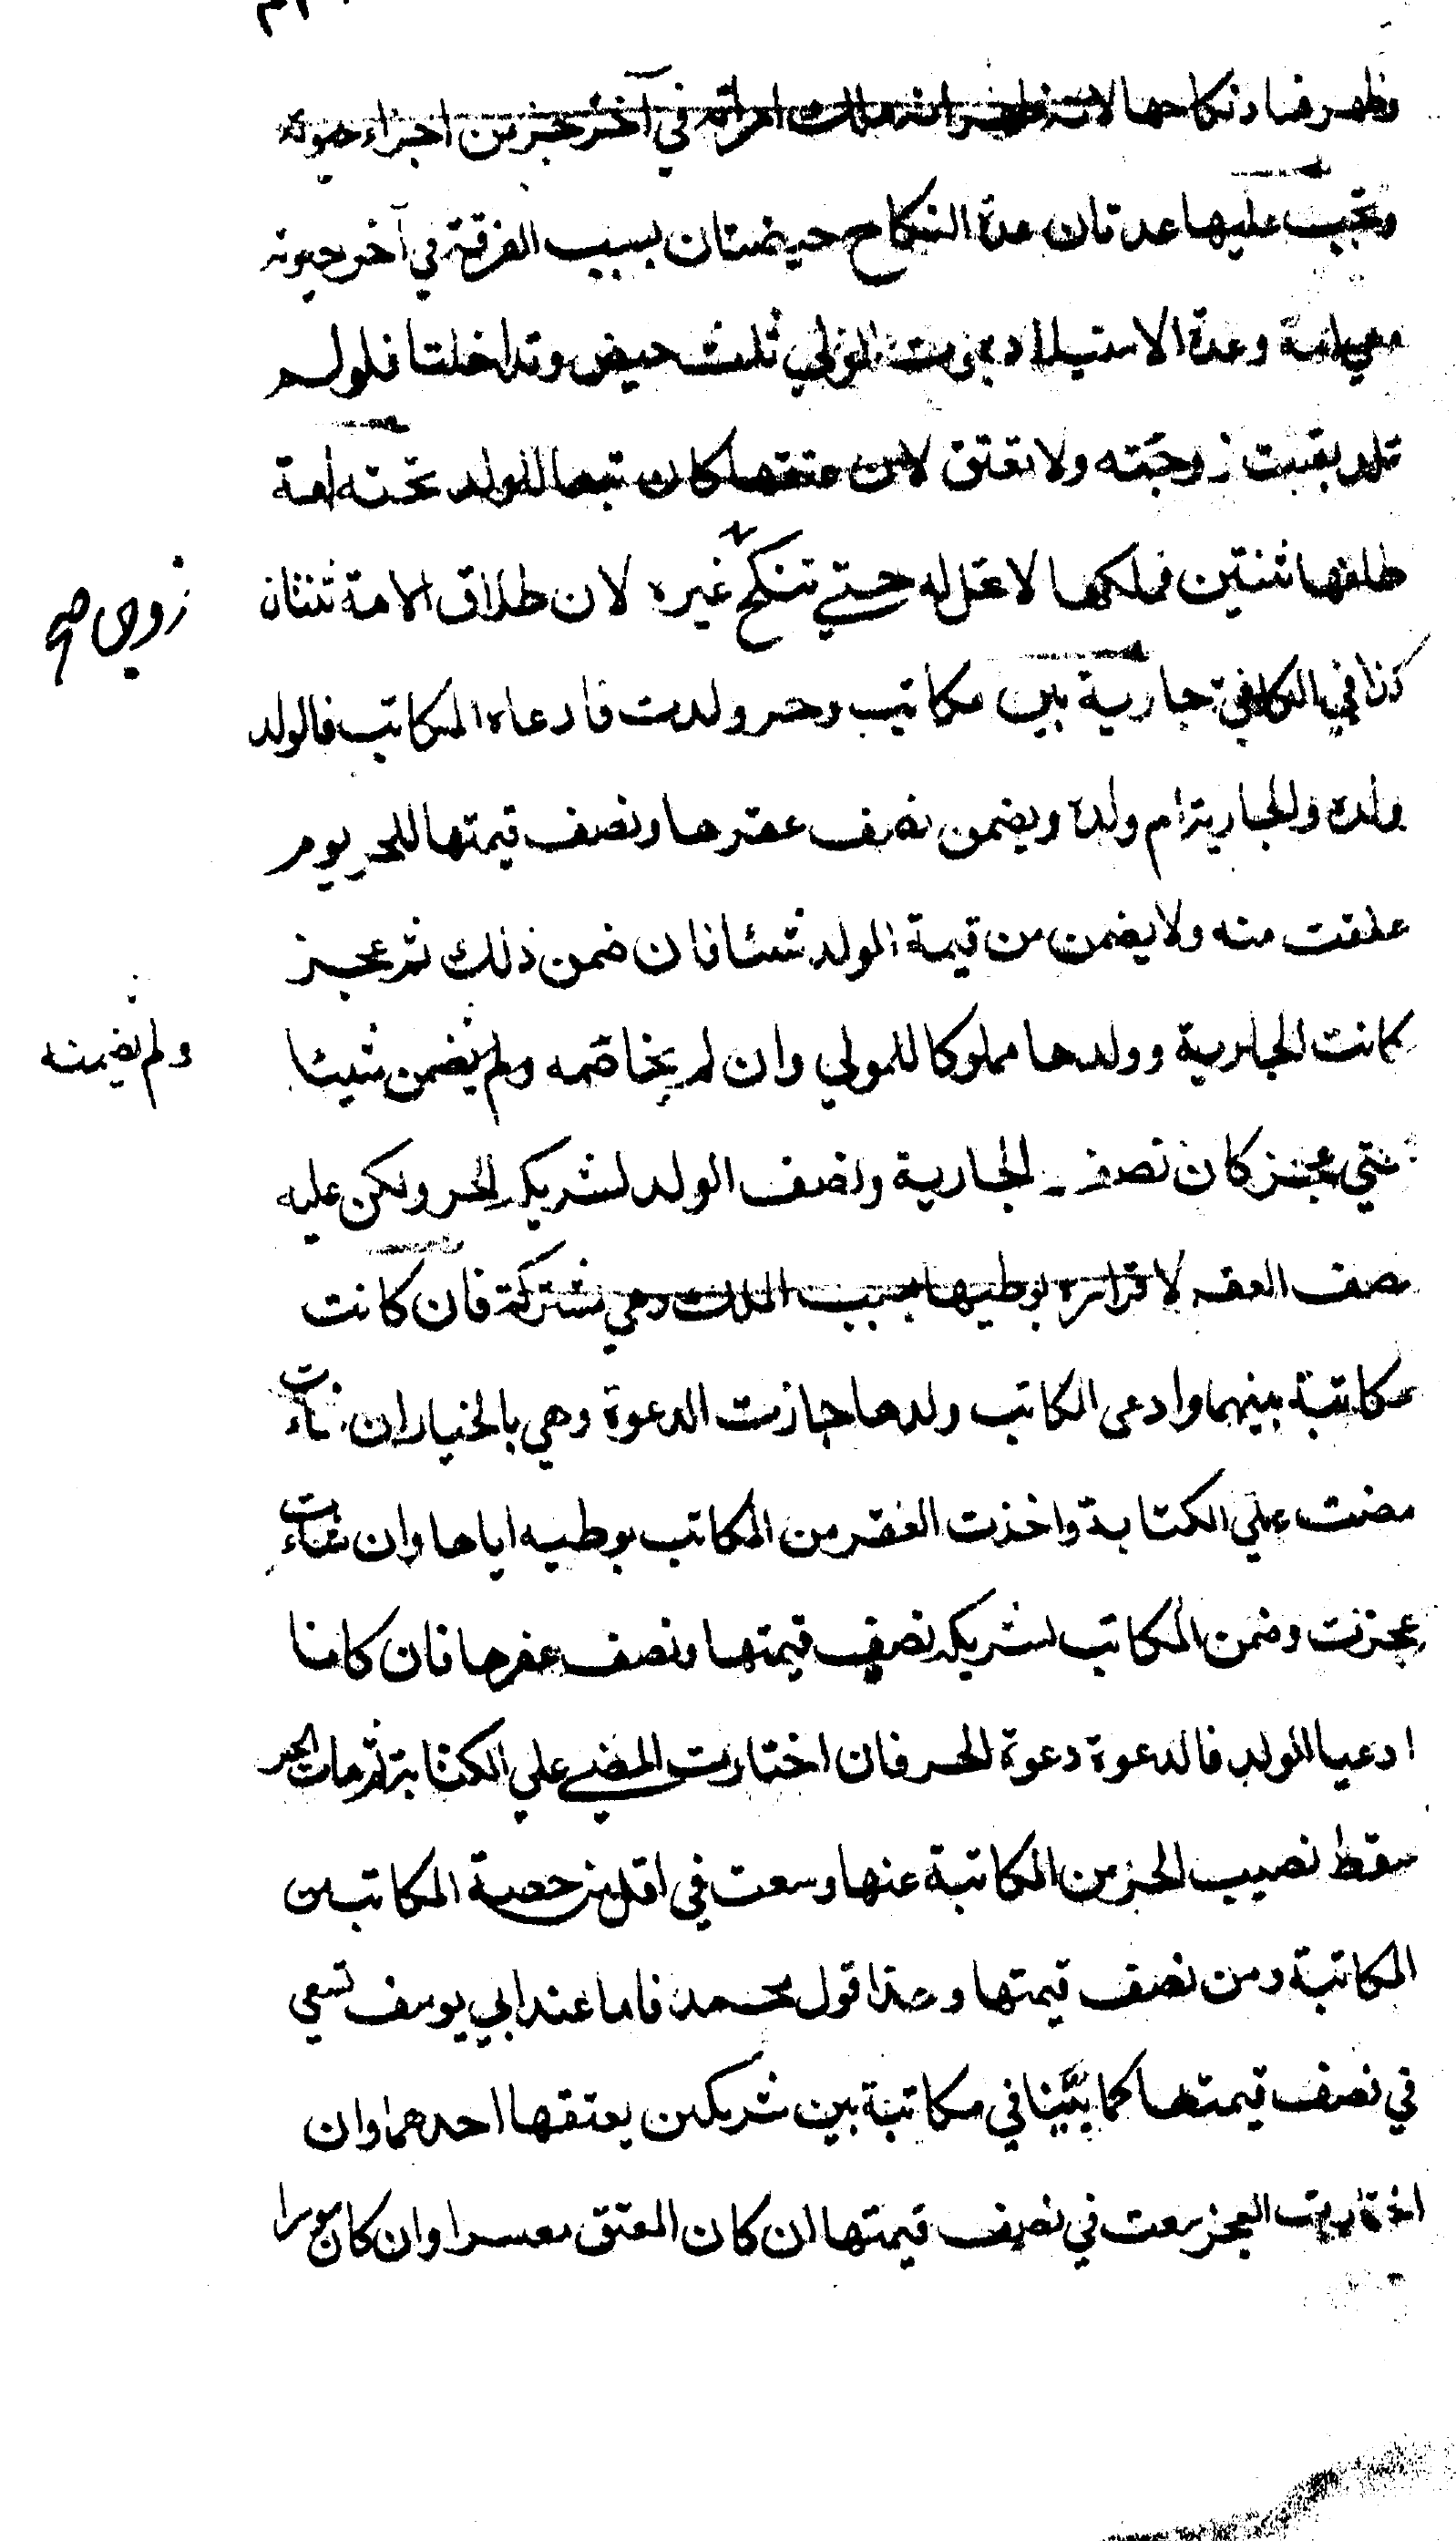 وظهر فساد نكاحها لانه ظهر انه ملك امراته في آخر جزء من اجزاء حيوته
وتجب عليها عدتان عدة النكاح حيضتان بسبب الفرقة في آخر حيوته
وهي امة وعدة الاستيلاد بموت المولي ثلث حيض وتداخلتا فلو لم
تلد بقيت زوجته ولا تعتق لان عتقها كان تبعا للولد تحته امة
طلقها ثنتين فملكها لا تحل له حتي تنكح غيره لان طلاق الامة ثنتان
زوجا صح
كذا في الكافي جارية بين مكاتب وحر ولدت فادعاه المكاتب فالولد
ولده والجارية ام ولده ويضمن نصف عقرها ونصف قيمتها للحر يوم
علقت منه ولا يضمن من قيمة الولد شئا فان ضمن ذلك ثم عجز
كانت الجارية وولدها مملوكا للمولي وان لم يخاصمه ولم يضمن شيئا
ولم يضمنه
حتي عجز كان نصف الجارية ونصف الولد لشريكه الحر ولكن عليه
نصف العقر لاقراره بوطيها بسبب الملك وهي مشتركة فان كانت
مكاتبة بينهما وادعى المكاتب ولدها جازت الدعوة وهي بالخيار ان شاءت
مضت علي الكتابة واخذت العقر من المكاتب بوطيه اياها وان شاءت
عجزت وضمن المكاتب لشريكه نصف قيمتها ونصف عقرها فان كانا
ادعيا الولد فالدعوة دعوة الحر فان اختارت المضي علي الكتابة ثم مات الحر
سقط نصيب الحر من المكاتبة عنها وسعت في اقل من حصة المكاتب من
المكاتبة ومن نصف قيمتها وهذا قول محمد فاما عند ابي يوسف تسعي
في نصف قيمتها كما بيّنا في مكاتبة بين شريكين يعتقها احدهما وان
اختارت العجز سعت في نصف قيمتها ان كان المعتق معسرا وان كان موسرا